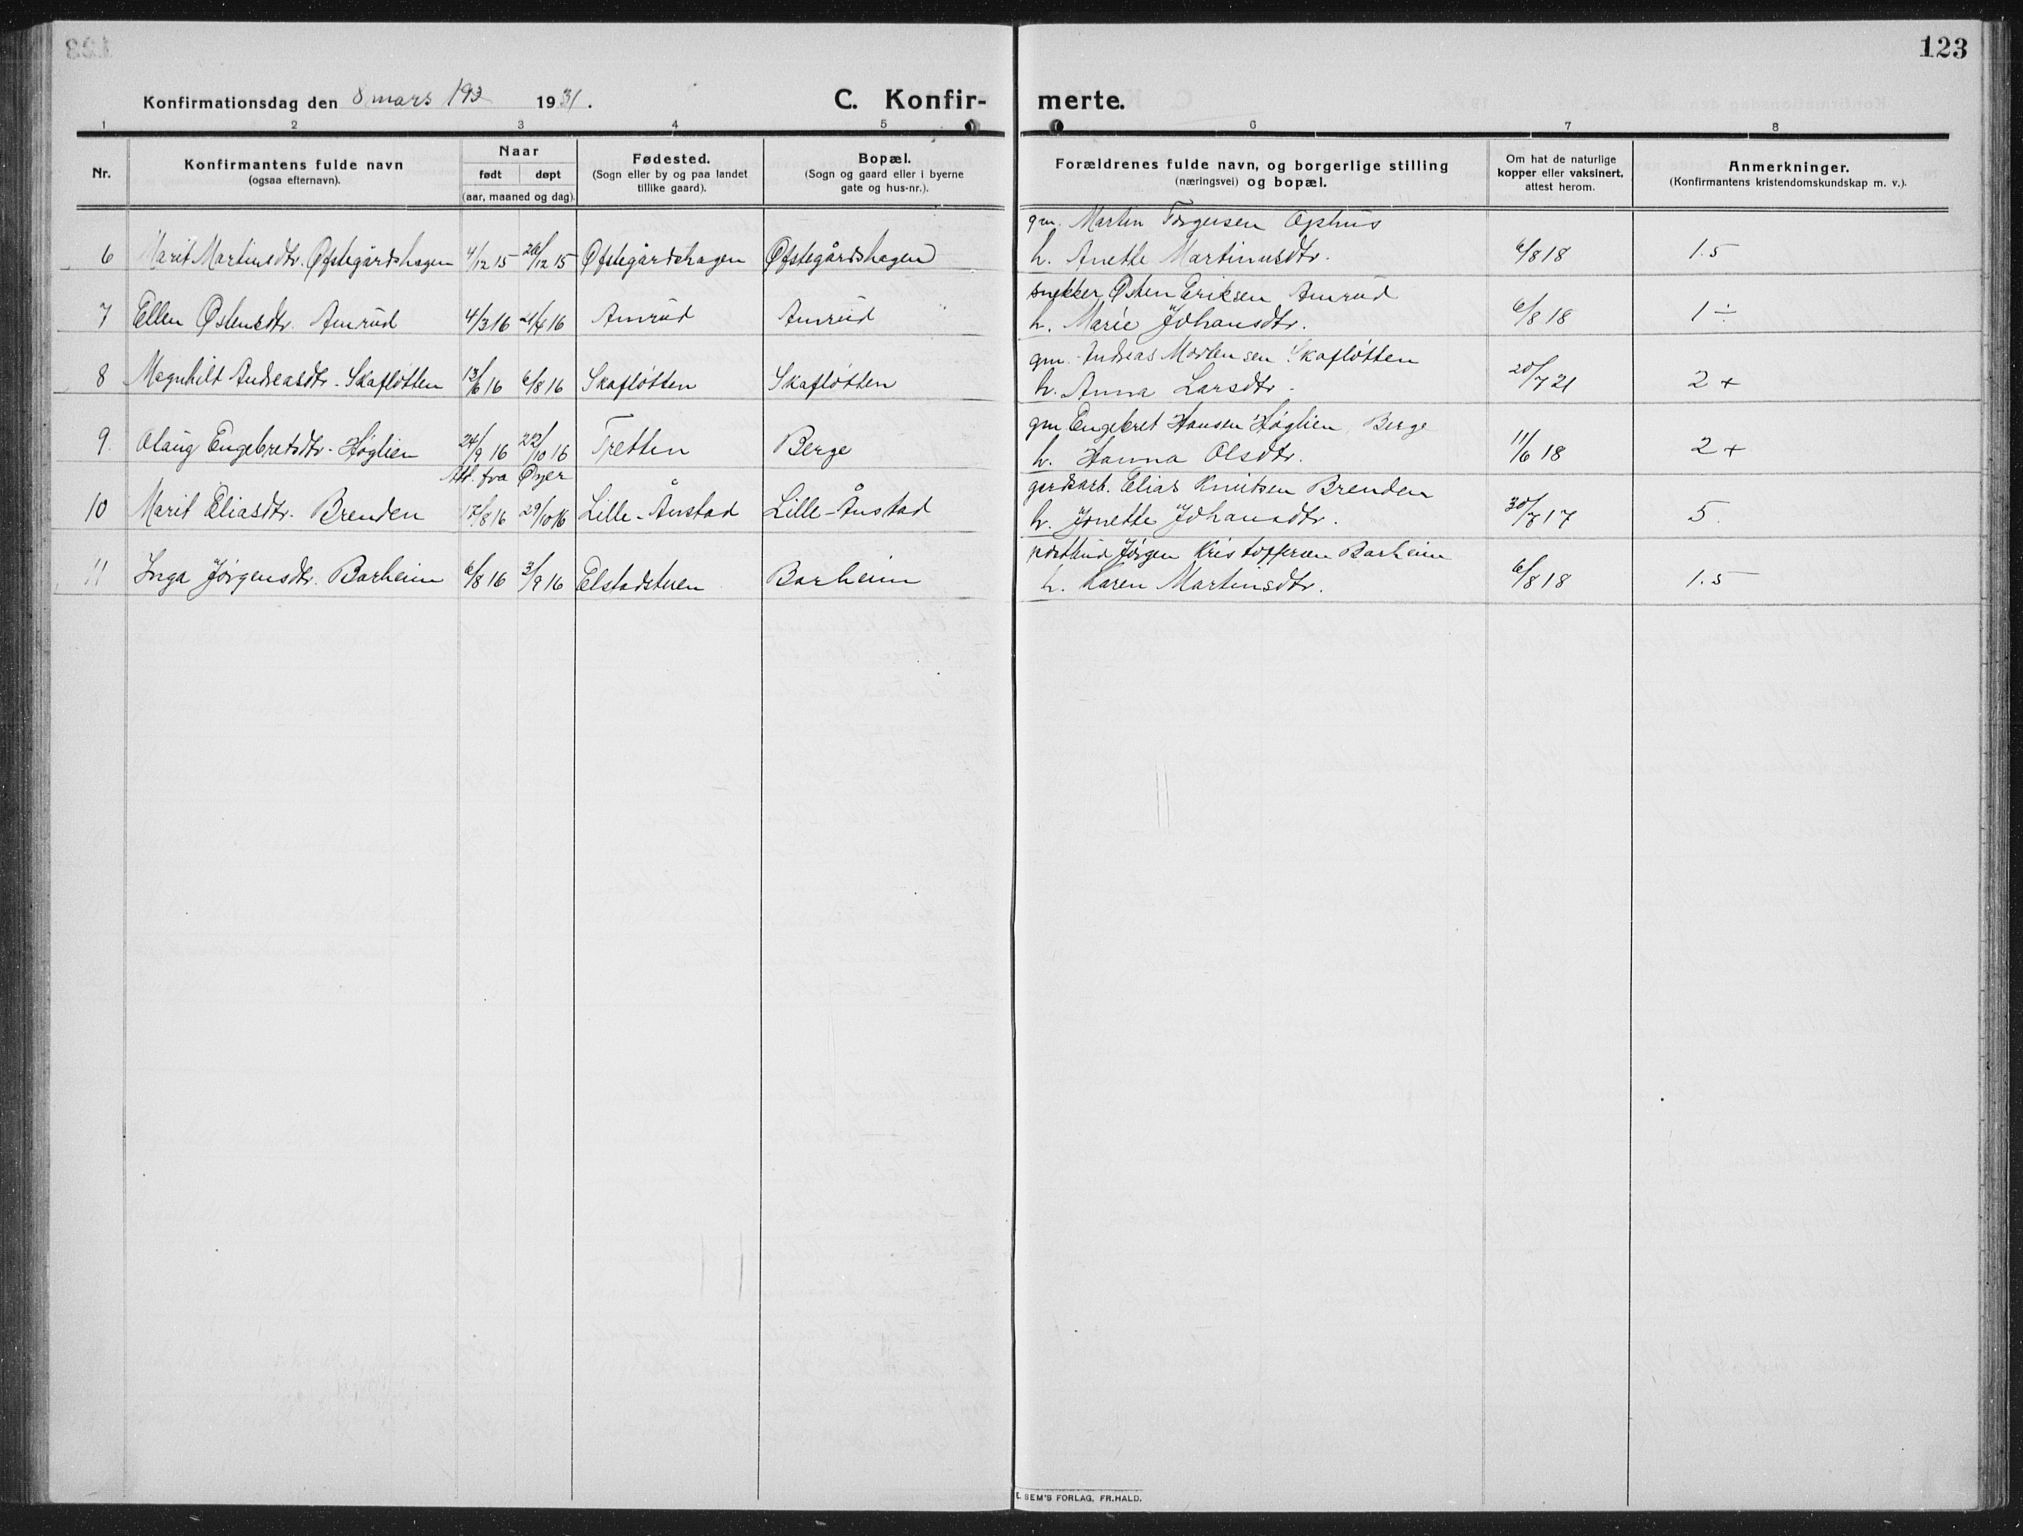 123
Konfirmationsdag den 8 mars 193 1931.
C. Konfir- merte.
1 2 3 4 5 6 7 8
Nr.
Konfirmantens fulde navn
(ogsaa efternavn).
Naar
født døpt
(aar, maaned og dag).
Fødested.
(Sogn eller by og paa landet
tillike gaard).
Bopæl.
(Sogn og gaard eller i byerne
gate og hus-nr.).
Forældrenes fulde navn, og borgerlige stilling
(næringsvei) og bopæl.
Om hat de naturlige
kopper eller vaksinert,
attest herom.
Anmerkninger.
(Konfirmantens kristendomskundskap m. v.).
gm. Martin Torgersen Ophus
6 Marit Martinsdtr. Øfstegårdshagen 4/12 15 26/12 15 Øfstegårdshagen Øfstegårdshagen h. Anette Martinusdtr. 6/8 18 1.5
snekker Østen Eriksen Amrud
7 Ellen Østensdtr. Amrud 4/3 16 /4 16 Amrud Amrud h. Marie Johansdtr. 6/8 18 1 ÷
gm. Andreas Mortensen Skafløtten
8 Magnhilt Andreasdtr. Skafløtten 13/6 16 6/8 16 Skafløtten Skafløtten h. Anna Larsdtr. 20/7 21 2 +
gm Engebret Hansen Høglien, Berge
9. Olaug Engebretsdtr. Høglien 24/9 16 22/10 16 Tretten Berge h. Hanna Olsdtr. 11/6 18 2 +
Att. fra Øyer
gardsarb. Elias Knutsen Brenden
10 Marit Eliasdtr. Brenden 17/8 16 29/10 16 Lille-Ånstad Lille-Ånstad h. Jonette Johansdtr. 30/7 17 5.
Jørgen Kristoffersen Barheim
11 Inga Jørgensdtr. Barheim 6/8 16 3/9 16 Elstadstuen Barheim h. Karen Martinsdtr. 6/8 18 1.5
E. SEM'S FORLAG, FR.HALD.